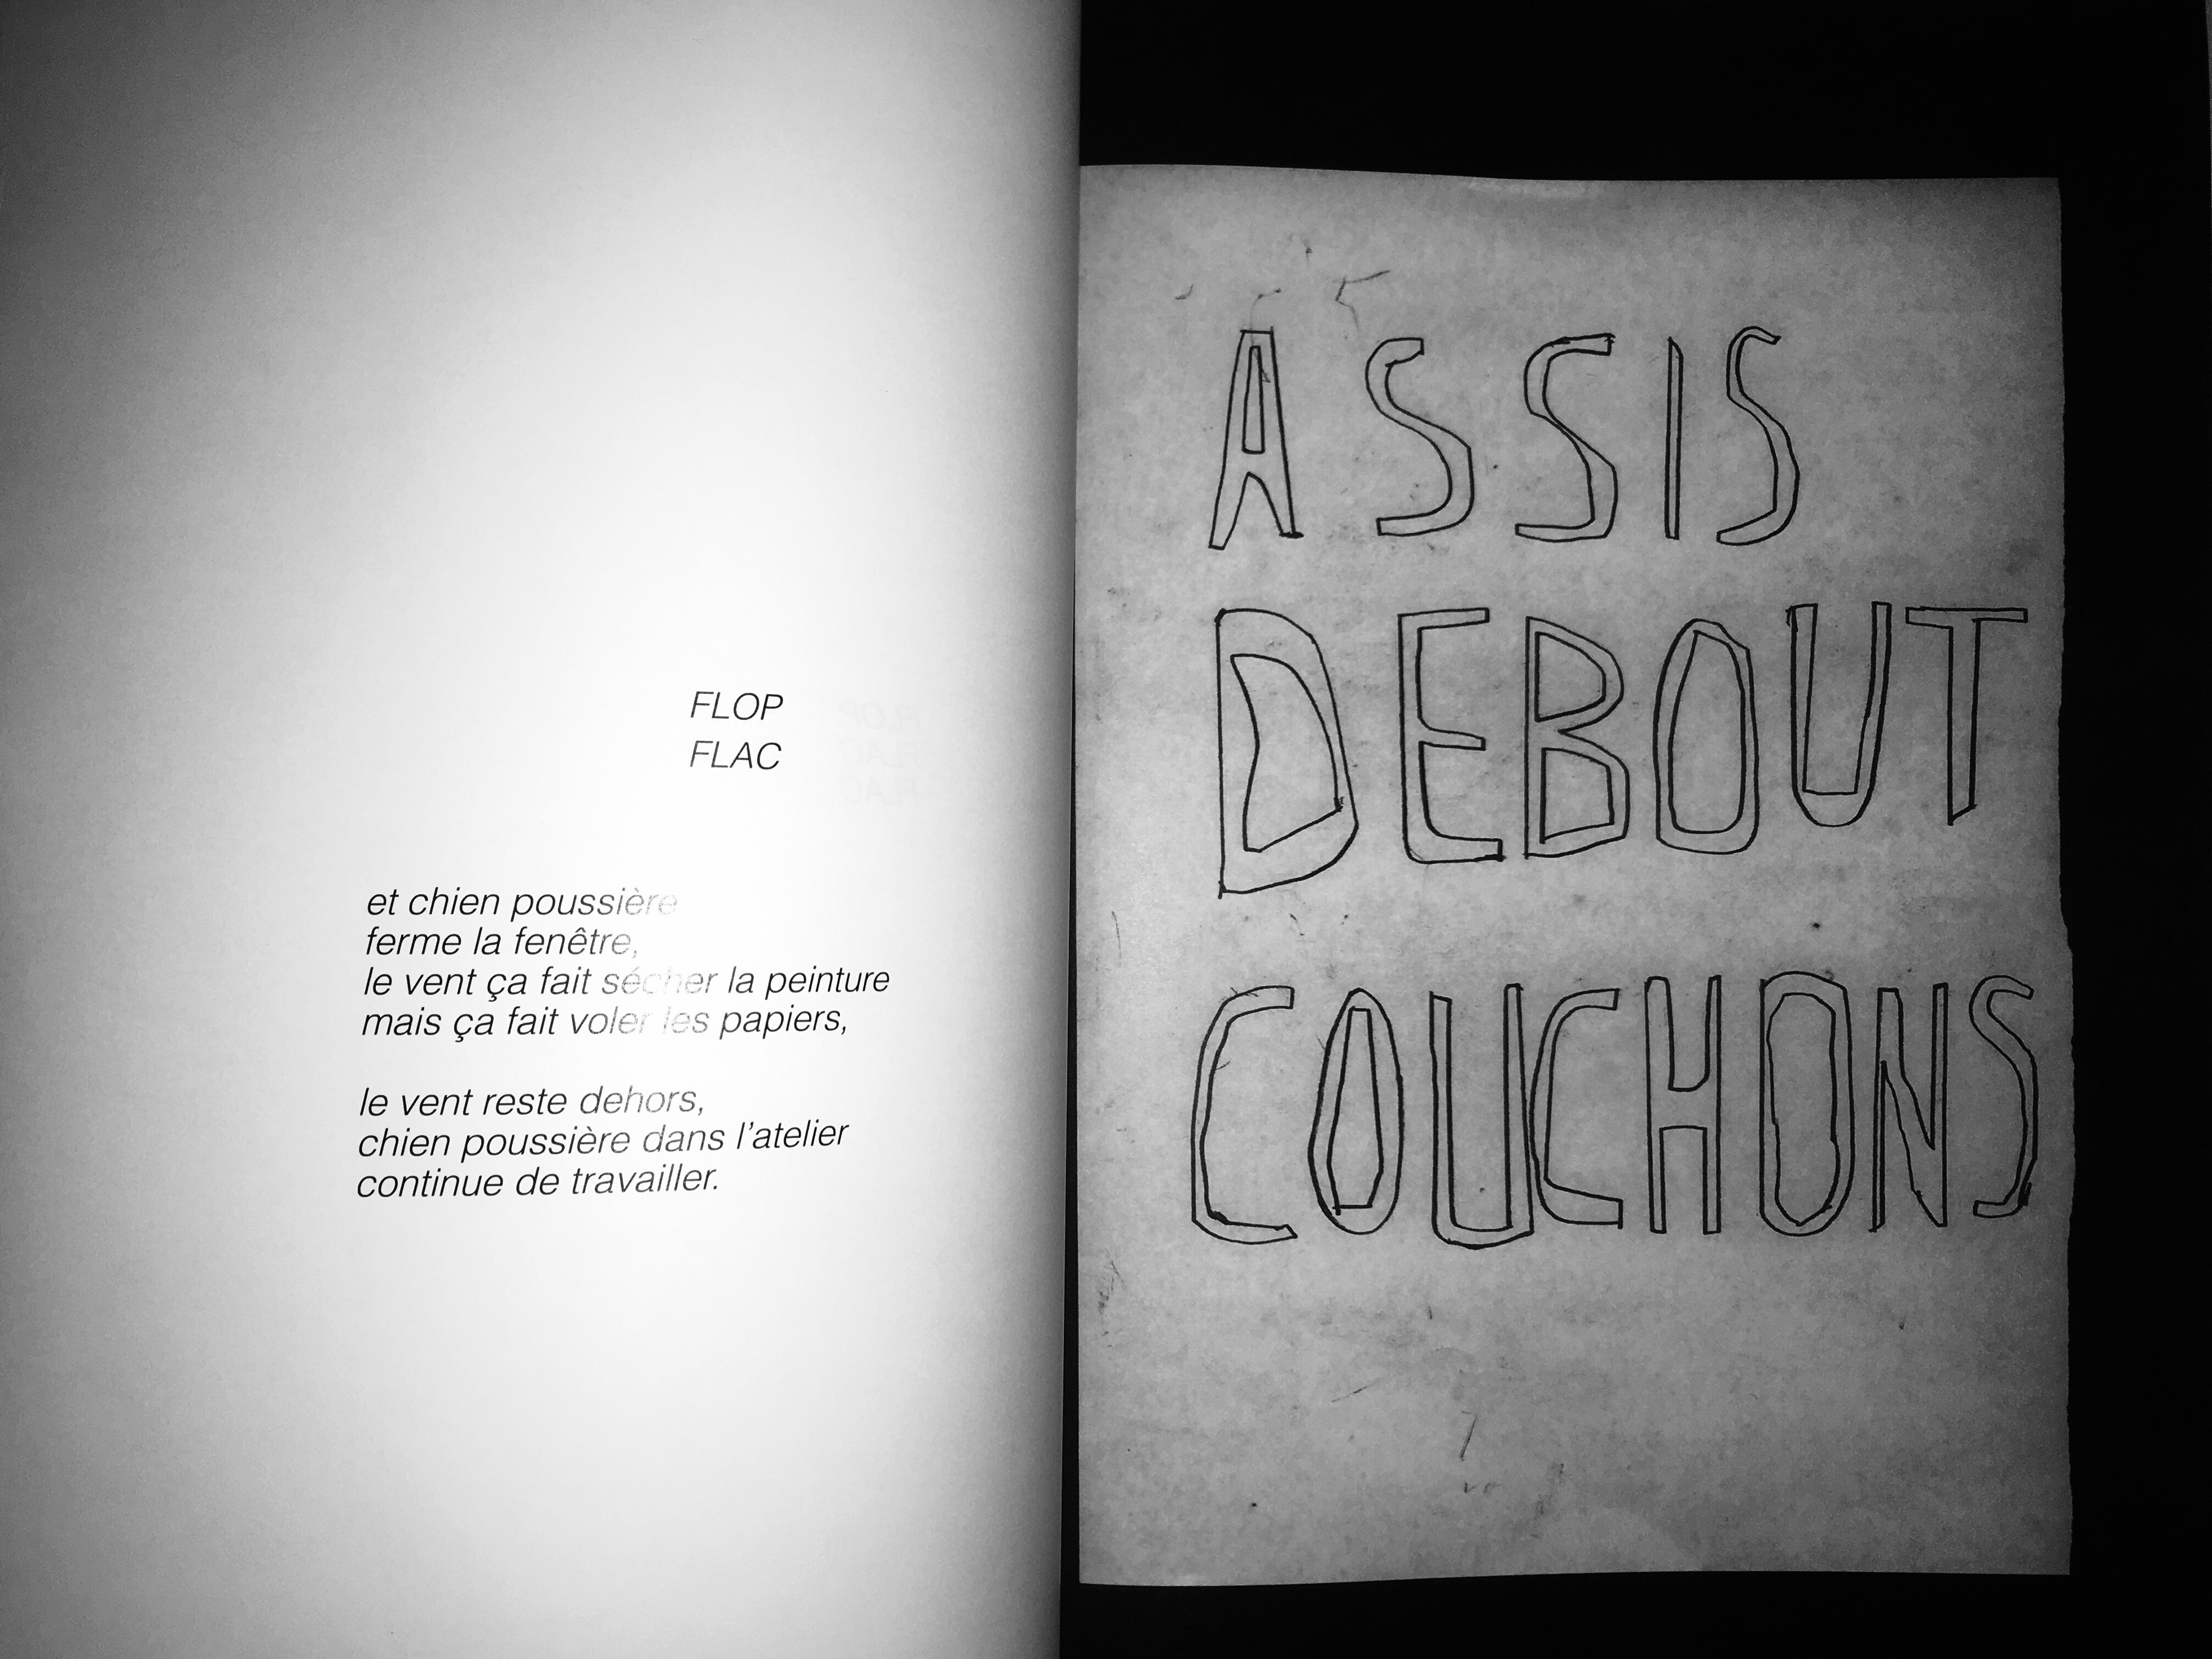 FLOP
FLAC
et chien poussière
ferme la fenêtre,
le vent ça fait sécher la peinture
mais ça fait voler les papiers,
le vent reste dehors,
chien poussière dans l'atelier
continue de travailler.
ASSIS
DEBOUT
COUCHONS